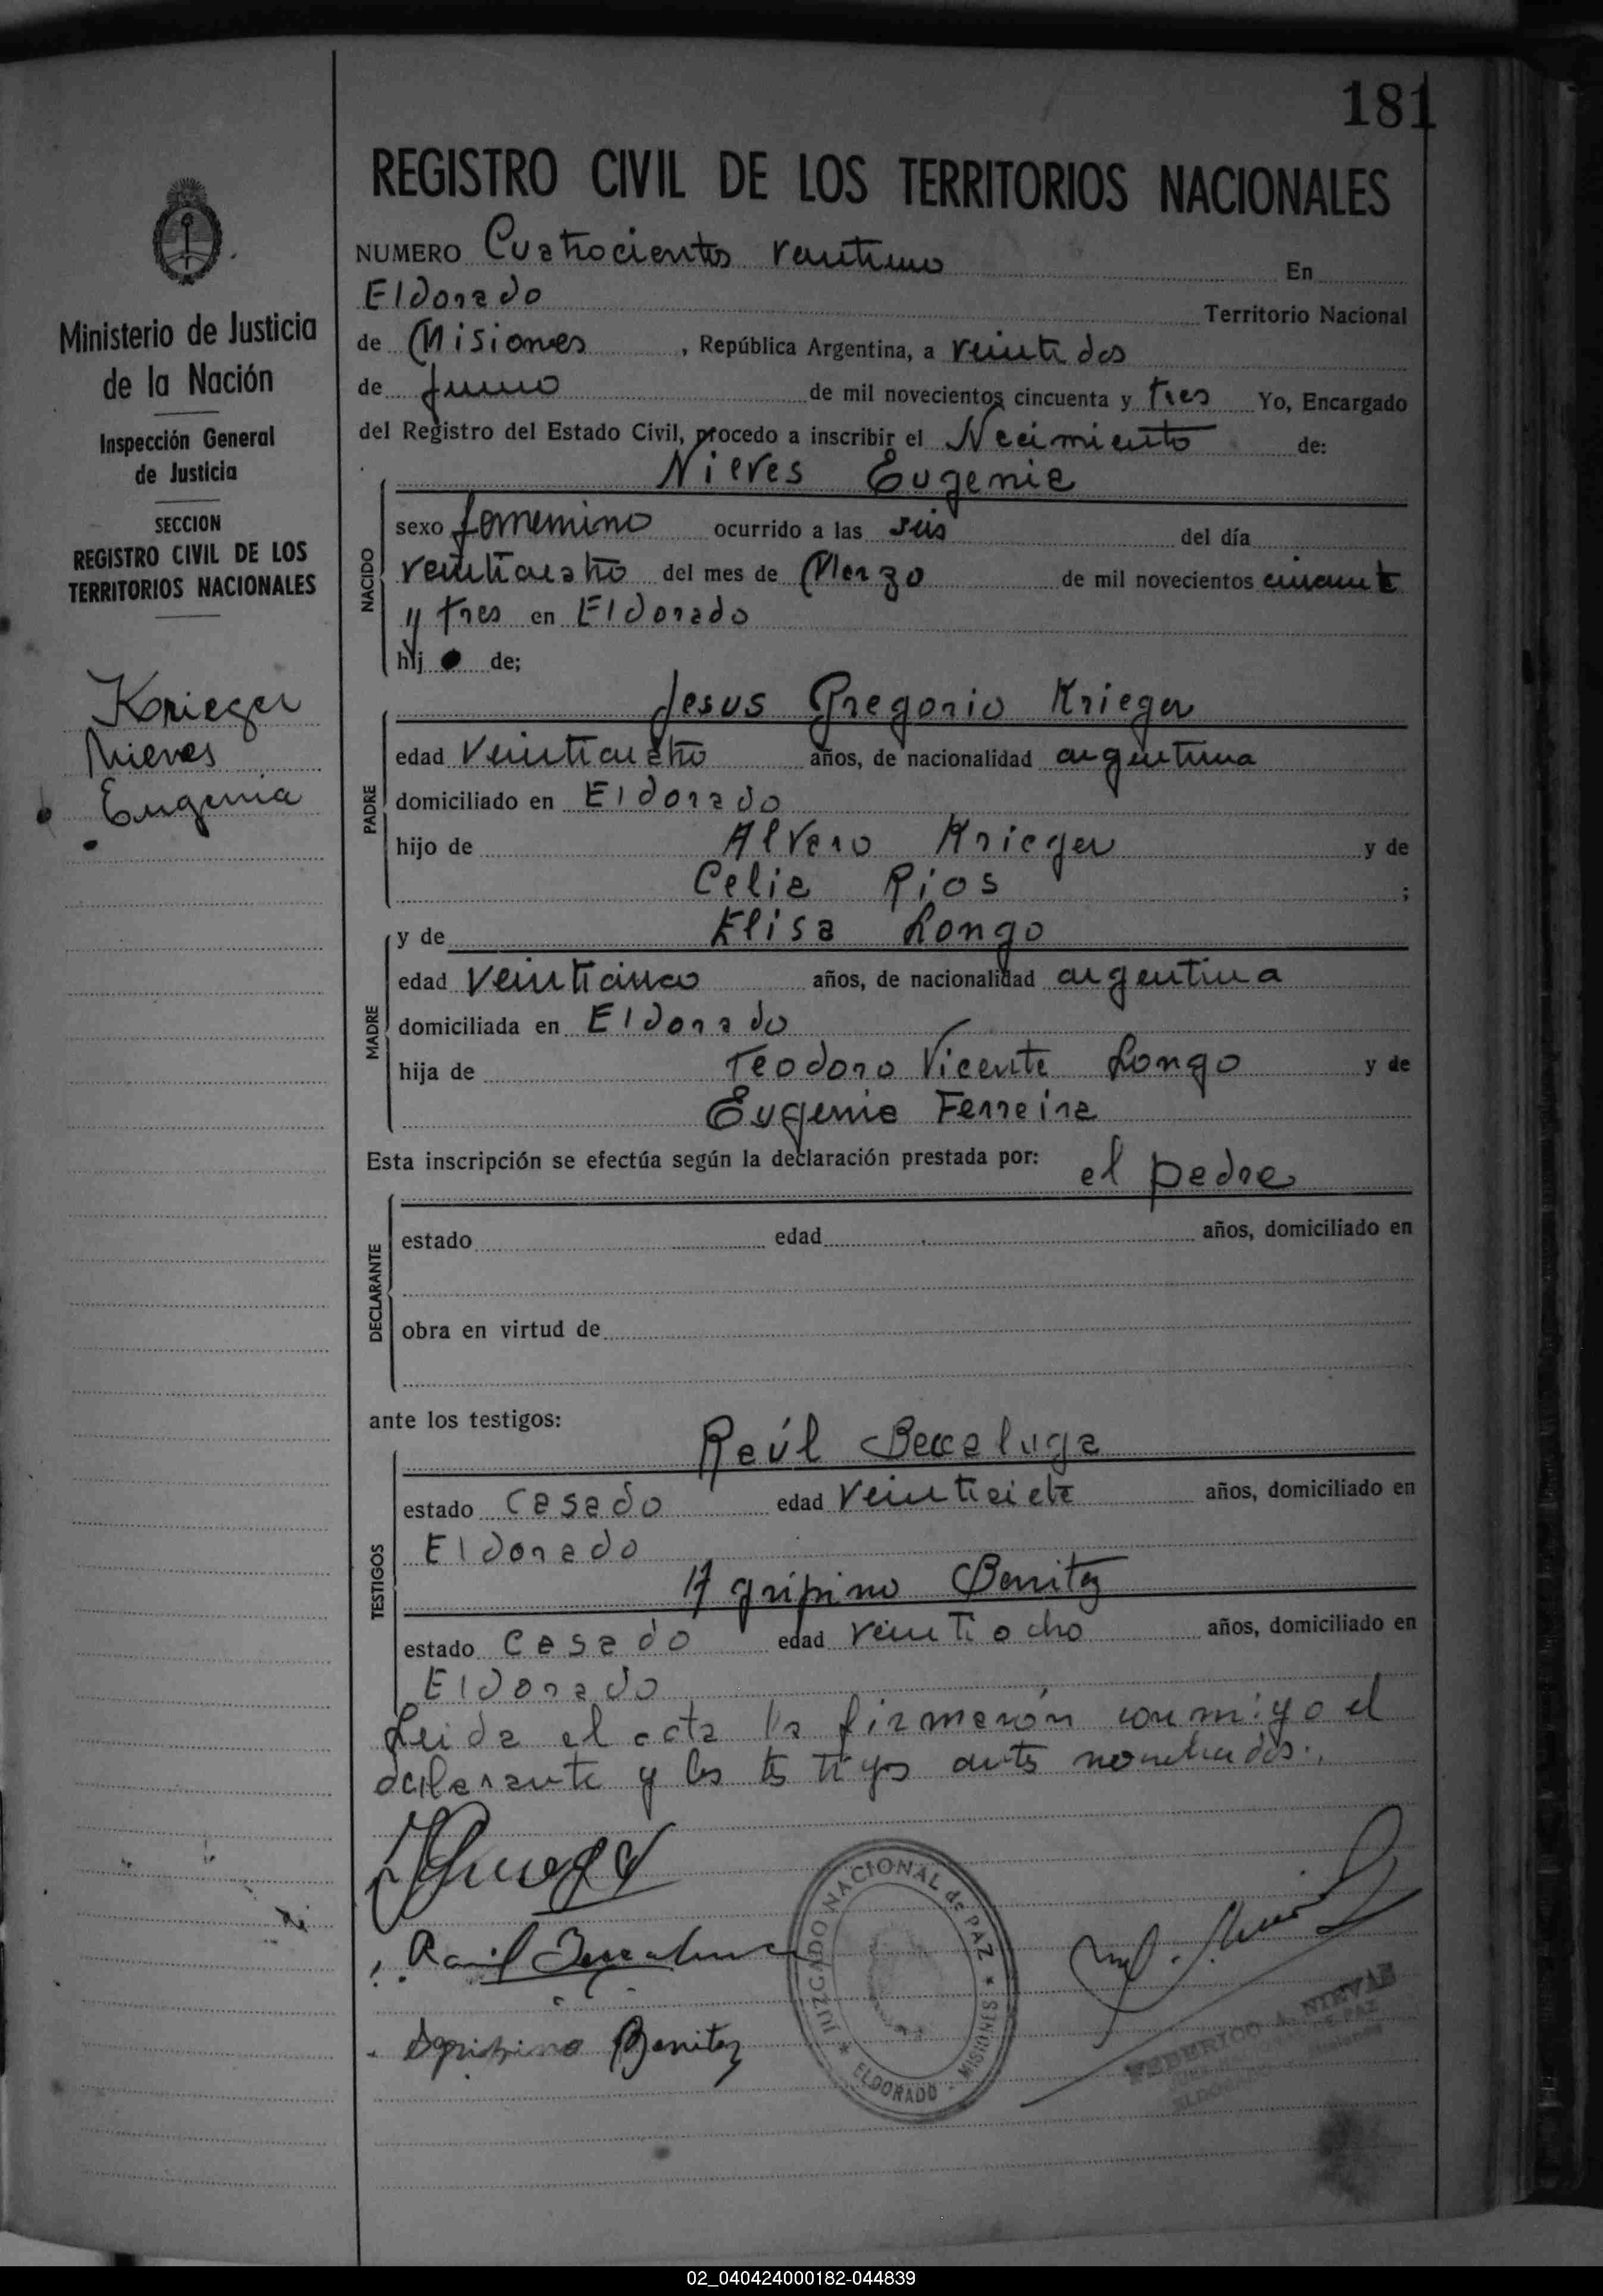 181
REGISTRO CIVIL DE LOS TERRITORIOS NACIONALES
NUMERO Cuatrocientos veintiuno En
Eldorado Territorio Nacional
de Misiones, República Argentina, a veintidos
de Junio de mil novecientos cincuenta y tres Yo, Encargado
del Registro del Estado Civil, procedo a inscribir el Nacimiento de:
Nieves Eugenia
NACIDO
sexo femenino ocurrido a las seis del día
veinticuatro del mes de Marzo de mil novecientos cincuenta
y tres en Eldorado
hij de;
Jesus Gregorio Krieger
PADRE
edad veinticuatro años, de nacionalidad argentina
domiciliado en Eldorado
hijo de Alvaro Krieger y de
Celia Rios ;
MADRE
y de Elisa Longo
edad veinticinco años, de nacionalidad argentina
domiciliada en Eldorado
hija de Teodoro Vicente Longo y de
Eugenia Ferreira
Esta inscripción se efectúa según la declaración prestada por: el padre
DECLARANTE
estado edad años, domiciliado en
obra en virtud de
ante los testigos:
TESTIGOS
Raúl Baccaluga
estado casado edad veintisiete años, domiciliado en
Eldorado
Agripino Benitez
estado casado edad veintiocho años, domiciliado en
Eldorado
Leida el acta la firmarón conmigo el
declarante y los testigos antes nombrados.
Agripino Benitez
JUZGADO NACIONAL de PAZ
ELDORADO - MISIONES
FEDERICO A. NIEVAS
Ministerio de Justicia
de la Nación
Inspección General
de Justicia
SECCION
REGISTRO CIVIL DE LOS
TERRITORIOS NACIONALES
Krieger
Nieves
Eugenia
02_040424000182-044839